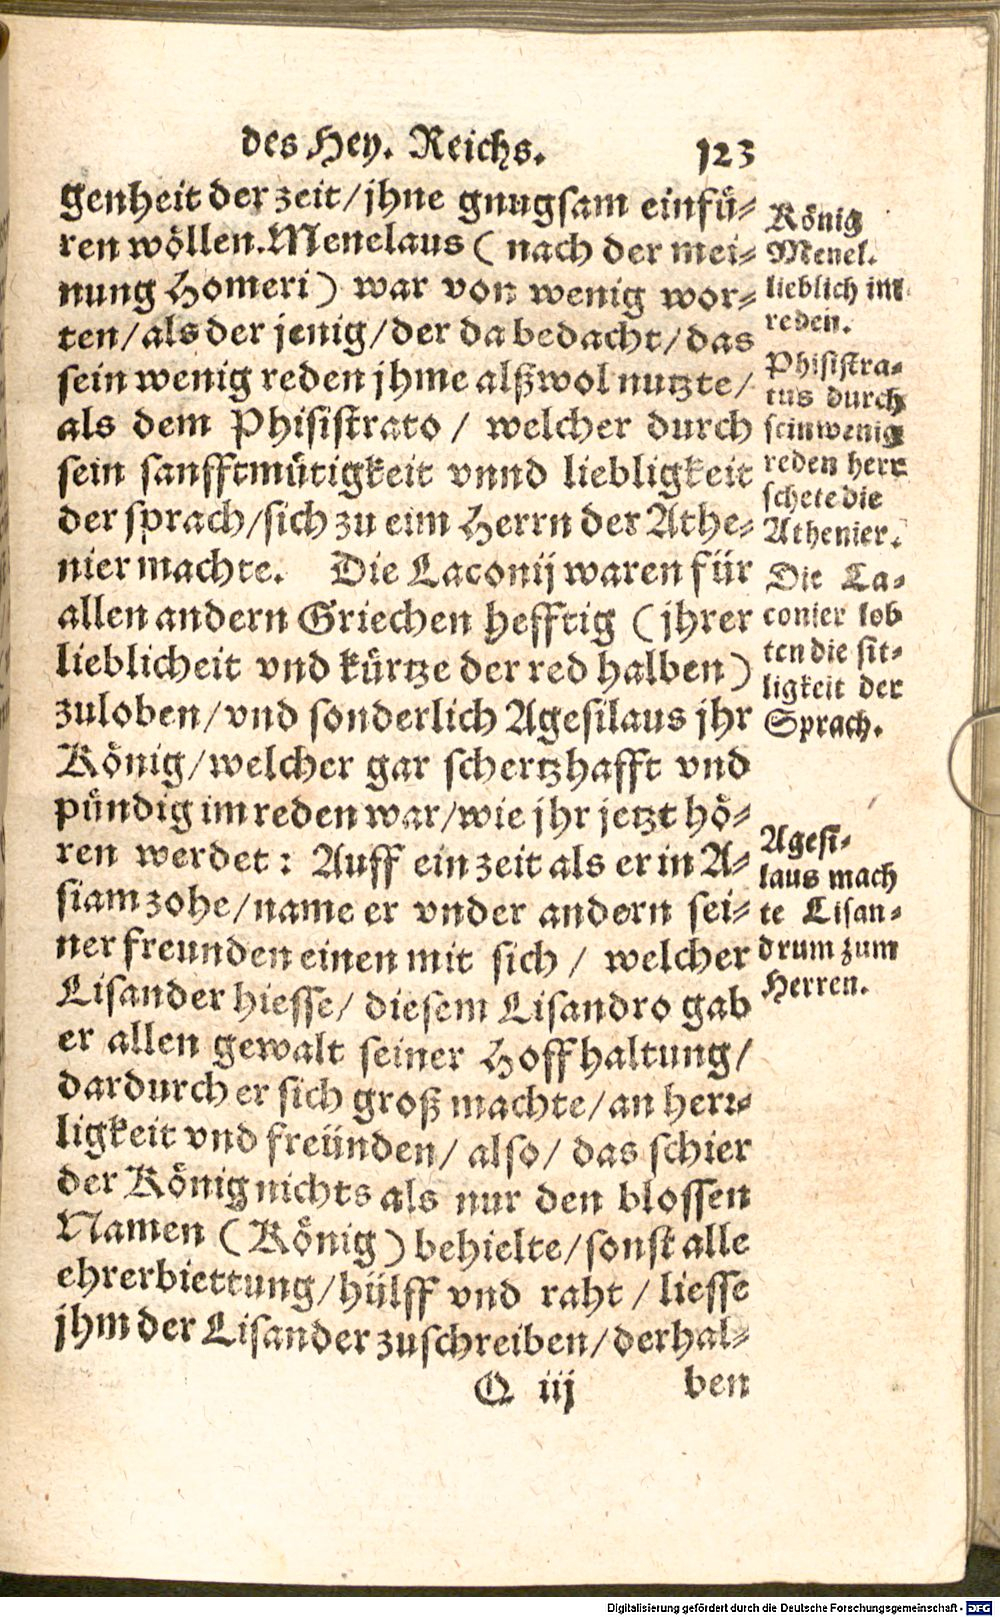 des Hey. Reichs. 123
genheit der zeit/jhne gnugsam einfü-
ren wöllen. Menelaus ( nach der mei-
nung Homeri ) war von wenig wor-
ten/als der jenig/der da bedacht/das
sein wenig reden jhme alßwol nutzte/
als dem Phisistrato / welcher durch
sein sanfftmütigkeit vnnd liebligkeit
der sprach/sich zu eim Herrn der Athe-
nier machte. Die Laconij waren für
allen andern Griechen hefftig ( jhrer
lieblicheit vnd kürtze der red halben )
zuloben/vnd sonderlich Agesilaus jhr
König/welcher gar schertzhafft vnd
pündig im reden war/wie jhr jetzt hö-
ren werdet: Auff ein zeit als er in A-
siam zohe/name er vnder andern sei-
ner freunden einen mit sich / welcher
Lisander hiesse/ diesem Lisandro gab
er allen gewalt seiner Hoffhaltung/
dardurch er sich groß machte/an herr-
ligkeit vnd freünden/ also/ das schier
der König nichts als nur den blossen
Namen ( König ) behielte/sonst alle
ehrerbiettung/hülff vnd raht / liesse
jhm der Lisander zuschreiben/derhal-
Q iij ben
König
Menel.
lieblich im
reden.
Phisistra-
tus durch
sein wenig
reden herr
schete die
Athenier.
Die La-
conier lob
ten die sit-
ligkeit der
Sprach.
Agesi-
laus mach
te Lisan-
drum zum
Herren.
Digitalisierung gefördert durch die Deutsche Forschungsgemeinschaft - DFG